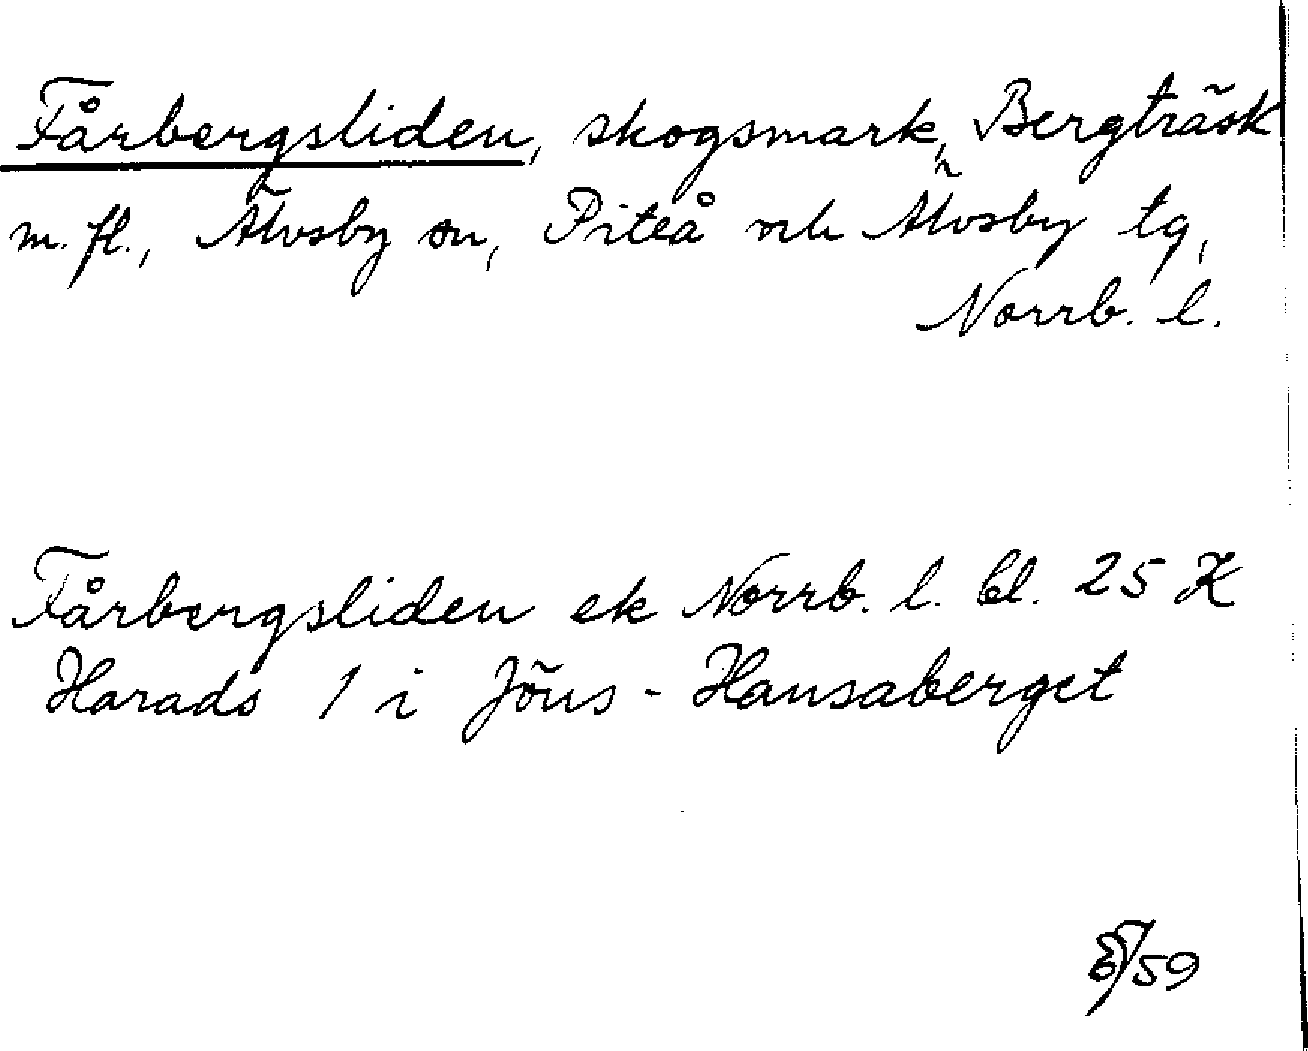 Fårbergsliden, skogsmark, Bergträsk
m. fl., Älvsby sn, Piteå och Älvsby tg,
Norrb. l.
Fårbergsliden ek Norrb. l. bl. 25 K
Harads 1 i Jöns-Hansaberget
/59